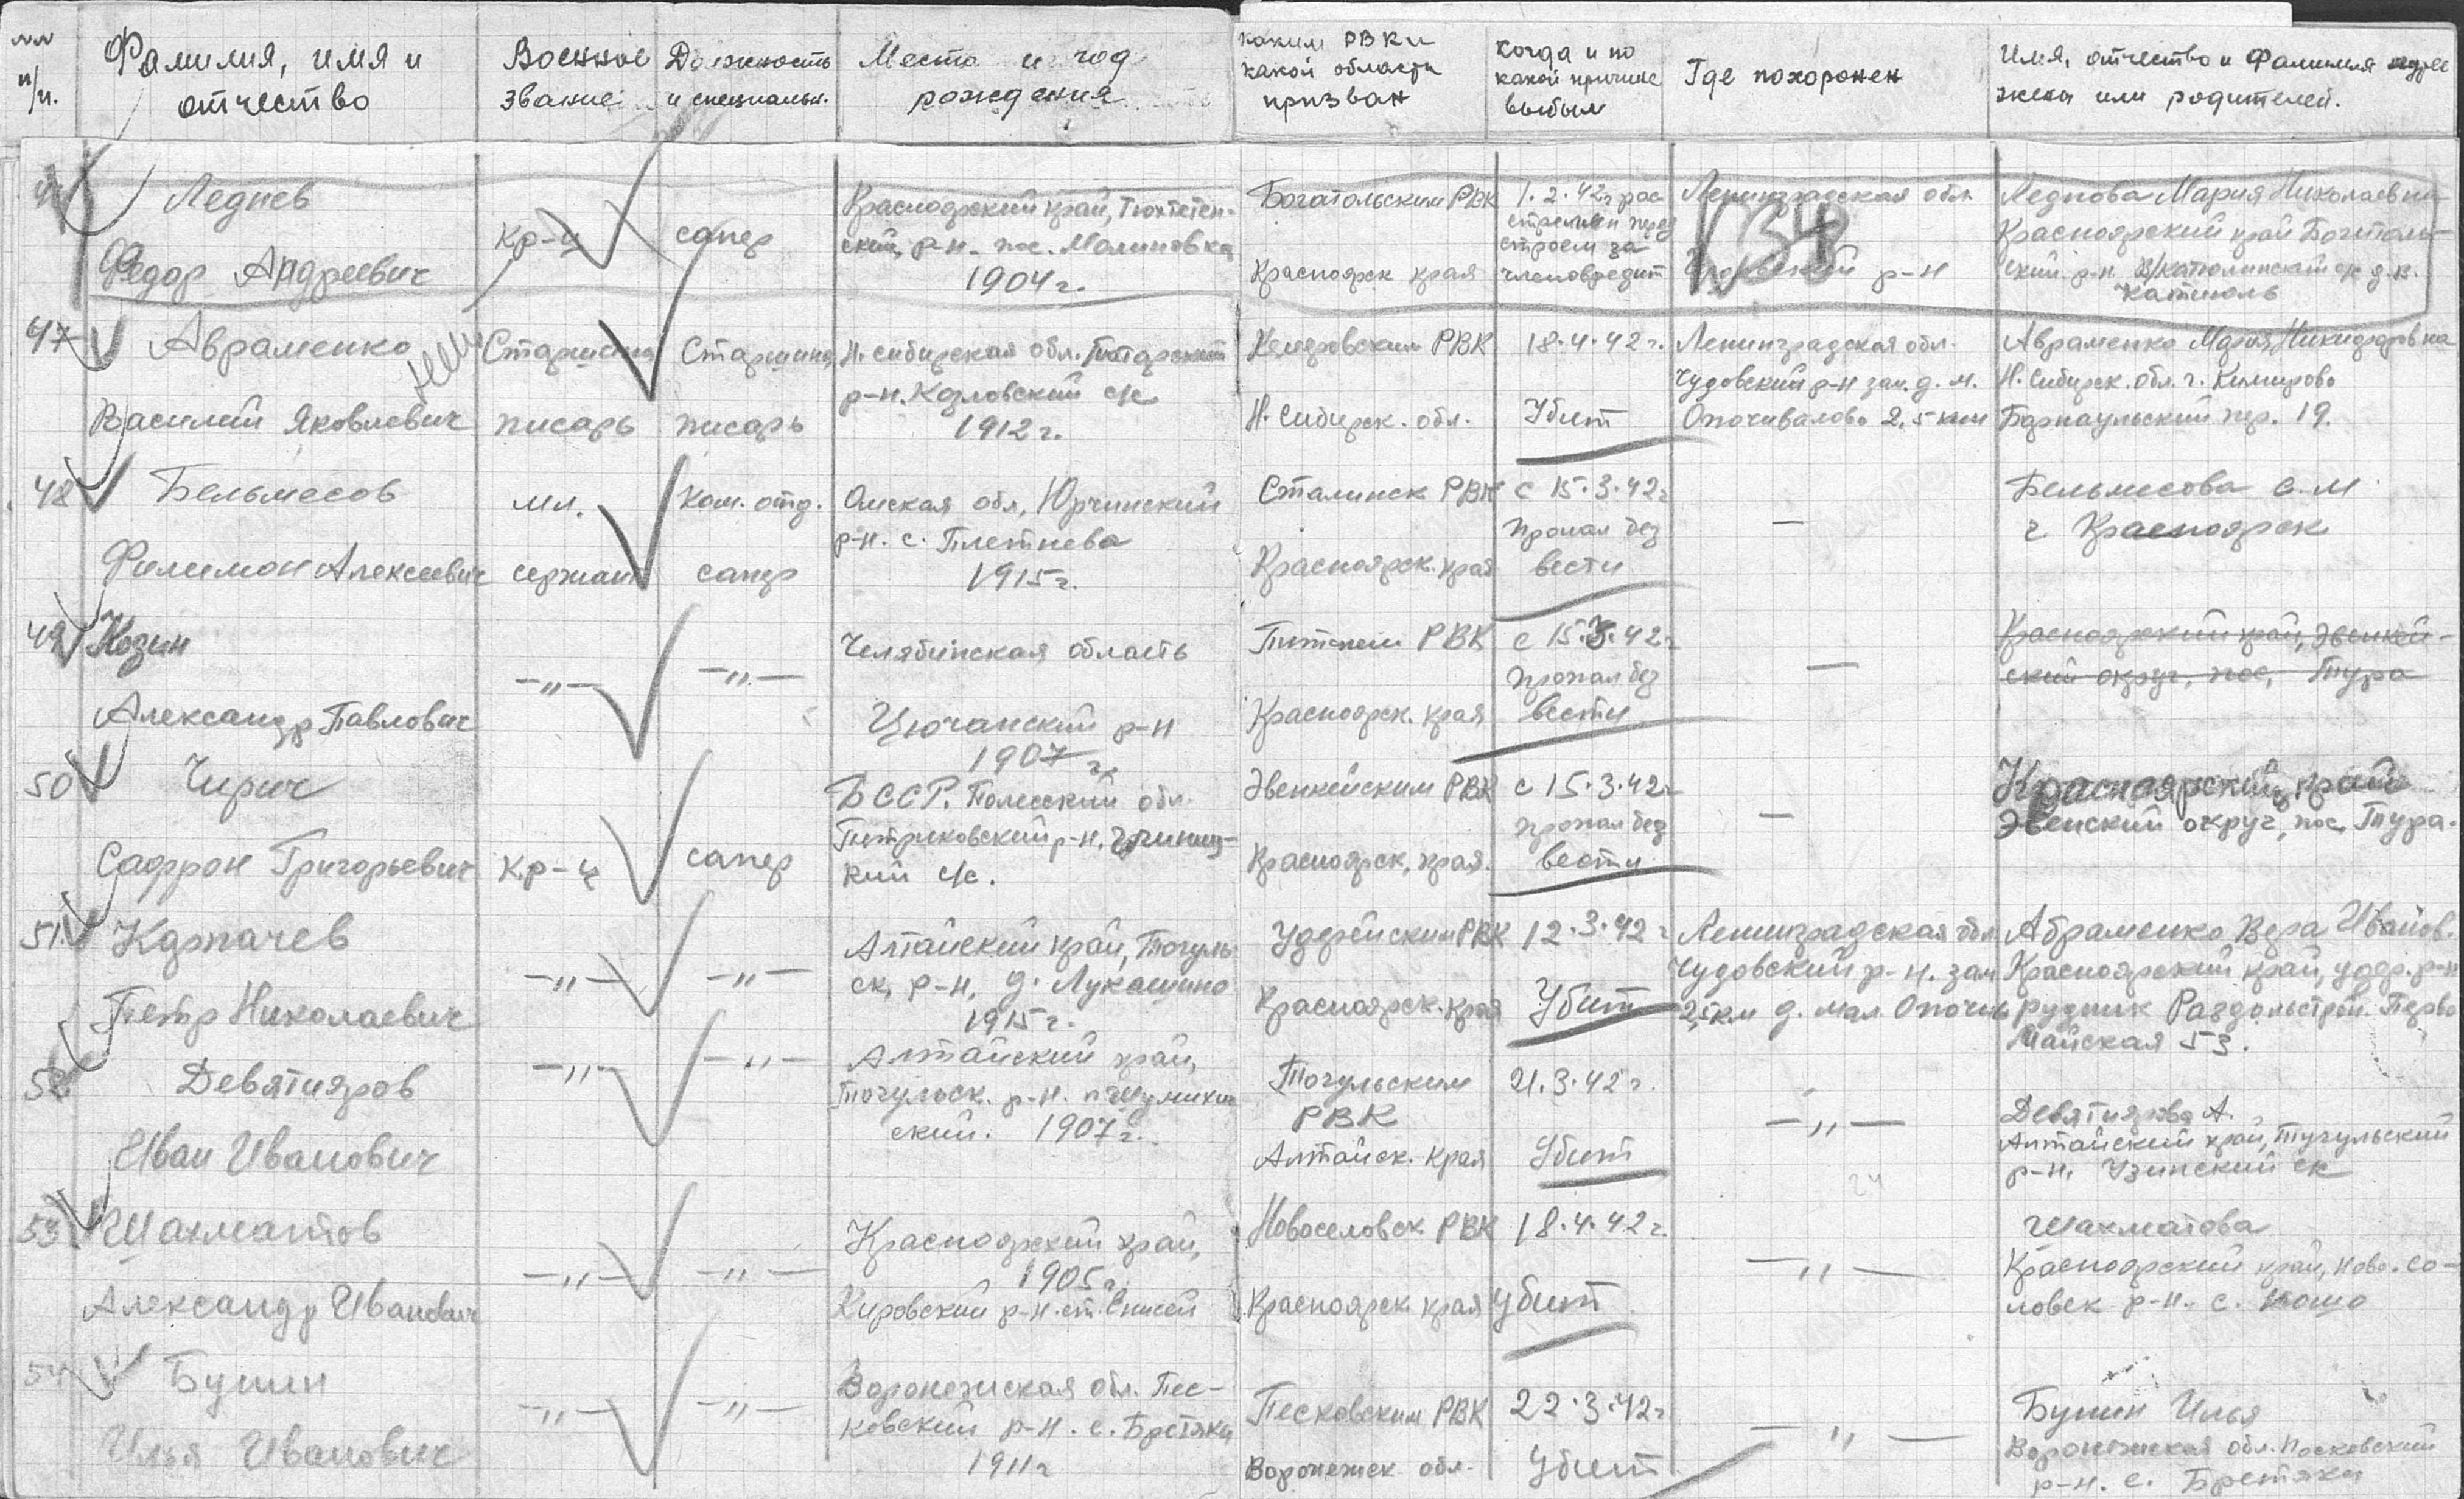 №№
п/п.
Фамилия, имя и
отчество
Военное
звание
Должность
и специальн.
Место и год
рождения
каким РВК и
какой области
призван
Когда и по
какой причине
выбыл
Где похоронен
Имя, отчество и фамилия
жены или родителей.
Леднев
Федор Андреевич
Кр-ц
сапер
Красноярский край, Тюхтетен-
ский р-н. пос. Малиновка
1904 г.
Богатольским РВК
Красноярск края
1.2.42г рас
стрелян перед
строем за
членовредит
Ленинградская обл.
р-н
Леднова Мария Николаевна
Красноярский край Боготоль-
ский р-н
Катюль
47
Авраменко
Василий Яковлевич
Старшина
писарь
Старшина
писарь
Н. Сибирская обл. Татарский
р-н. Козловский с/с
1912 г.
Кемеровским РВК
Н. Сибирск. обл.
18.4.42 г.
Убит
Ленинградская обл.
Чудовский р-н зап. д. м.
Опочивалово 2,5 км
Авраменко Мария Никифоровна
Н. Сибирск. обл. г. Кимирово
Барнаульский пер. 19.
48
Бельмесов
Филимон Алексеевич
мл.
сержан
Ком. отд.
сапер
Омская обл, Юрчинский
р-н. с. Плетнева
1915 г.
Сталинск РВК
Красноярск. края
с 15.3.42 г
пропал без
вести
—
Бельмесова С. М
г Красноярск
49
Козин
Александр Павлович
—„—
—„—
Челябинская область
Цючанский р-н
1907 г.
РВК
Красноярск. края
с 15.3.42 г
пропал без
вести
—
Красноярский край, Эвенкей-
ский округ, пос, Тура
50
Чирич
Сафрон Григорьевич
Кр-ц
сапер
БССР. Полесский обл.
Питриковский р-н,
кий с/с.
Эвенкейским РВК
Красноярск, края.
с 15.3.42 г
пропал без
вести
—
Красноярский край
Эвенский округ, пос, Тура.
51.
Карпачев
Петр Николаевич
—„—
—„—
Алтайский край, Тогуль
ск, р-н, д. Лукашино
1915 г.
Удерейским РВК
Красноярск. края
12.3.42 г
Убит
Ленинградская обл
Чудовский р-н. зап
2,5 км д. мал Опочив
Абраменко Вера Иванов.
Красноярский край, удер. р-н
рудник Раздольстрой. Перво
Майская 53.
52
Девятияров
Иван Иванович
—„—
—„—
Алтайский край,
Тогульск. р-н.
ский. 1907 г.
Тогульским
РВК
Алтайск. края
21.3.42 г.
Убит
—„—
Девятиярова А.
Алтайский край, Тугульский
р-н, Узинский ск
53
Шахматов
Александр Иванович
—„—
—„—
Красноярский край,
1905 г.
Кировский р-н. ст Енисей
Новоселовск РВК
Красноярск. края
18.4.42 г.
убит
—„—
Шахматова
Красноярский край, Ново-со-
ловск р-н. с.
54
Бунин
Илья Иванович
—„—
—„—
Воронежская обл. Пес-
ковский р-н. с. Братяки
1911 г
Песковским РВК
Воронежск обл.
22.3.42 г
Убит
—„—
Бунин Илья
Воронежская обл. Посковский
р-н. с. Бретяки